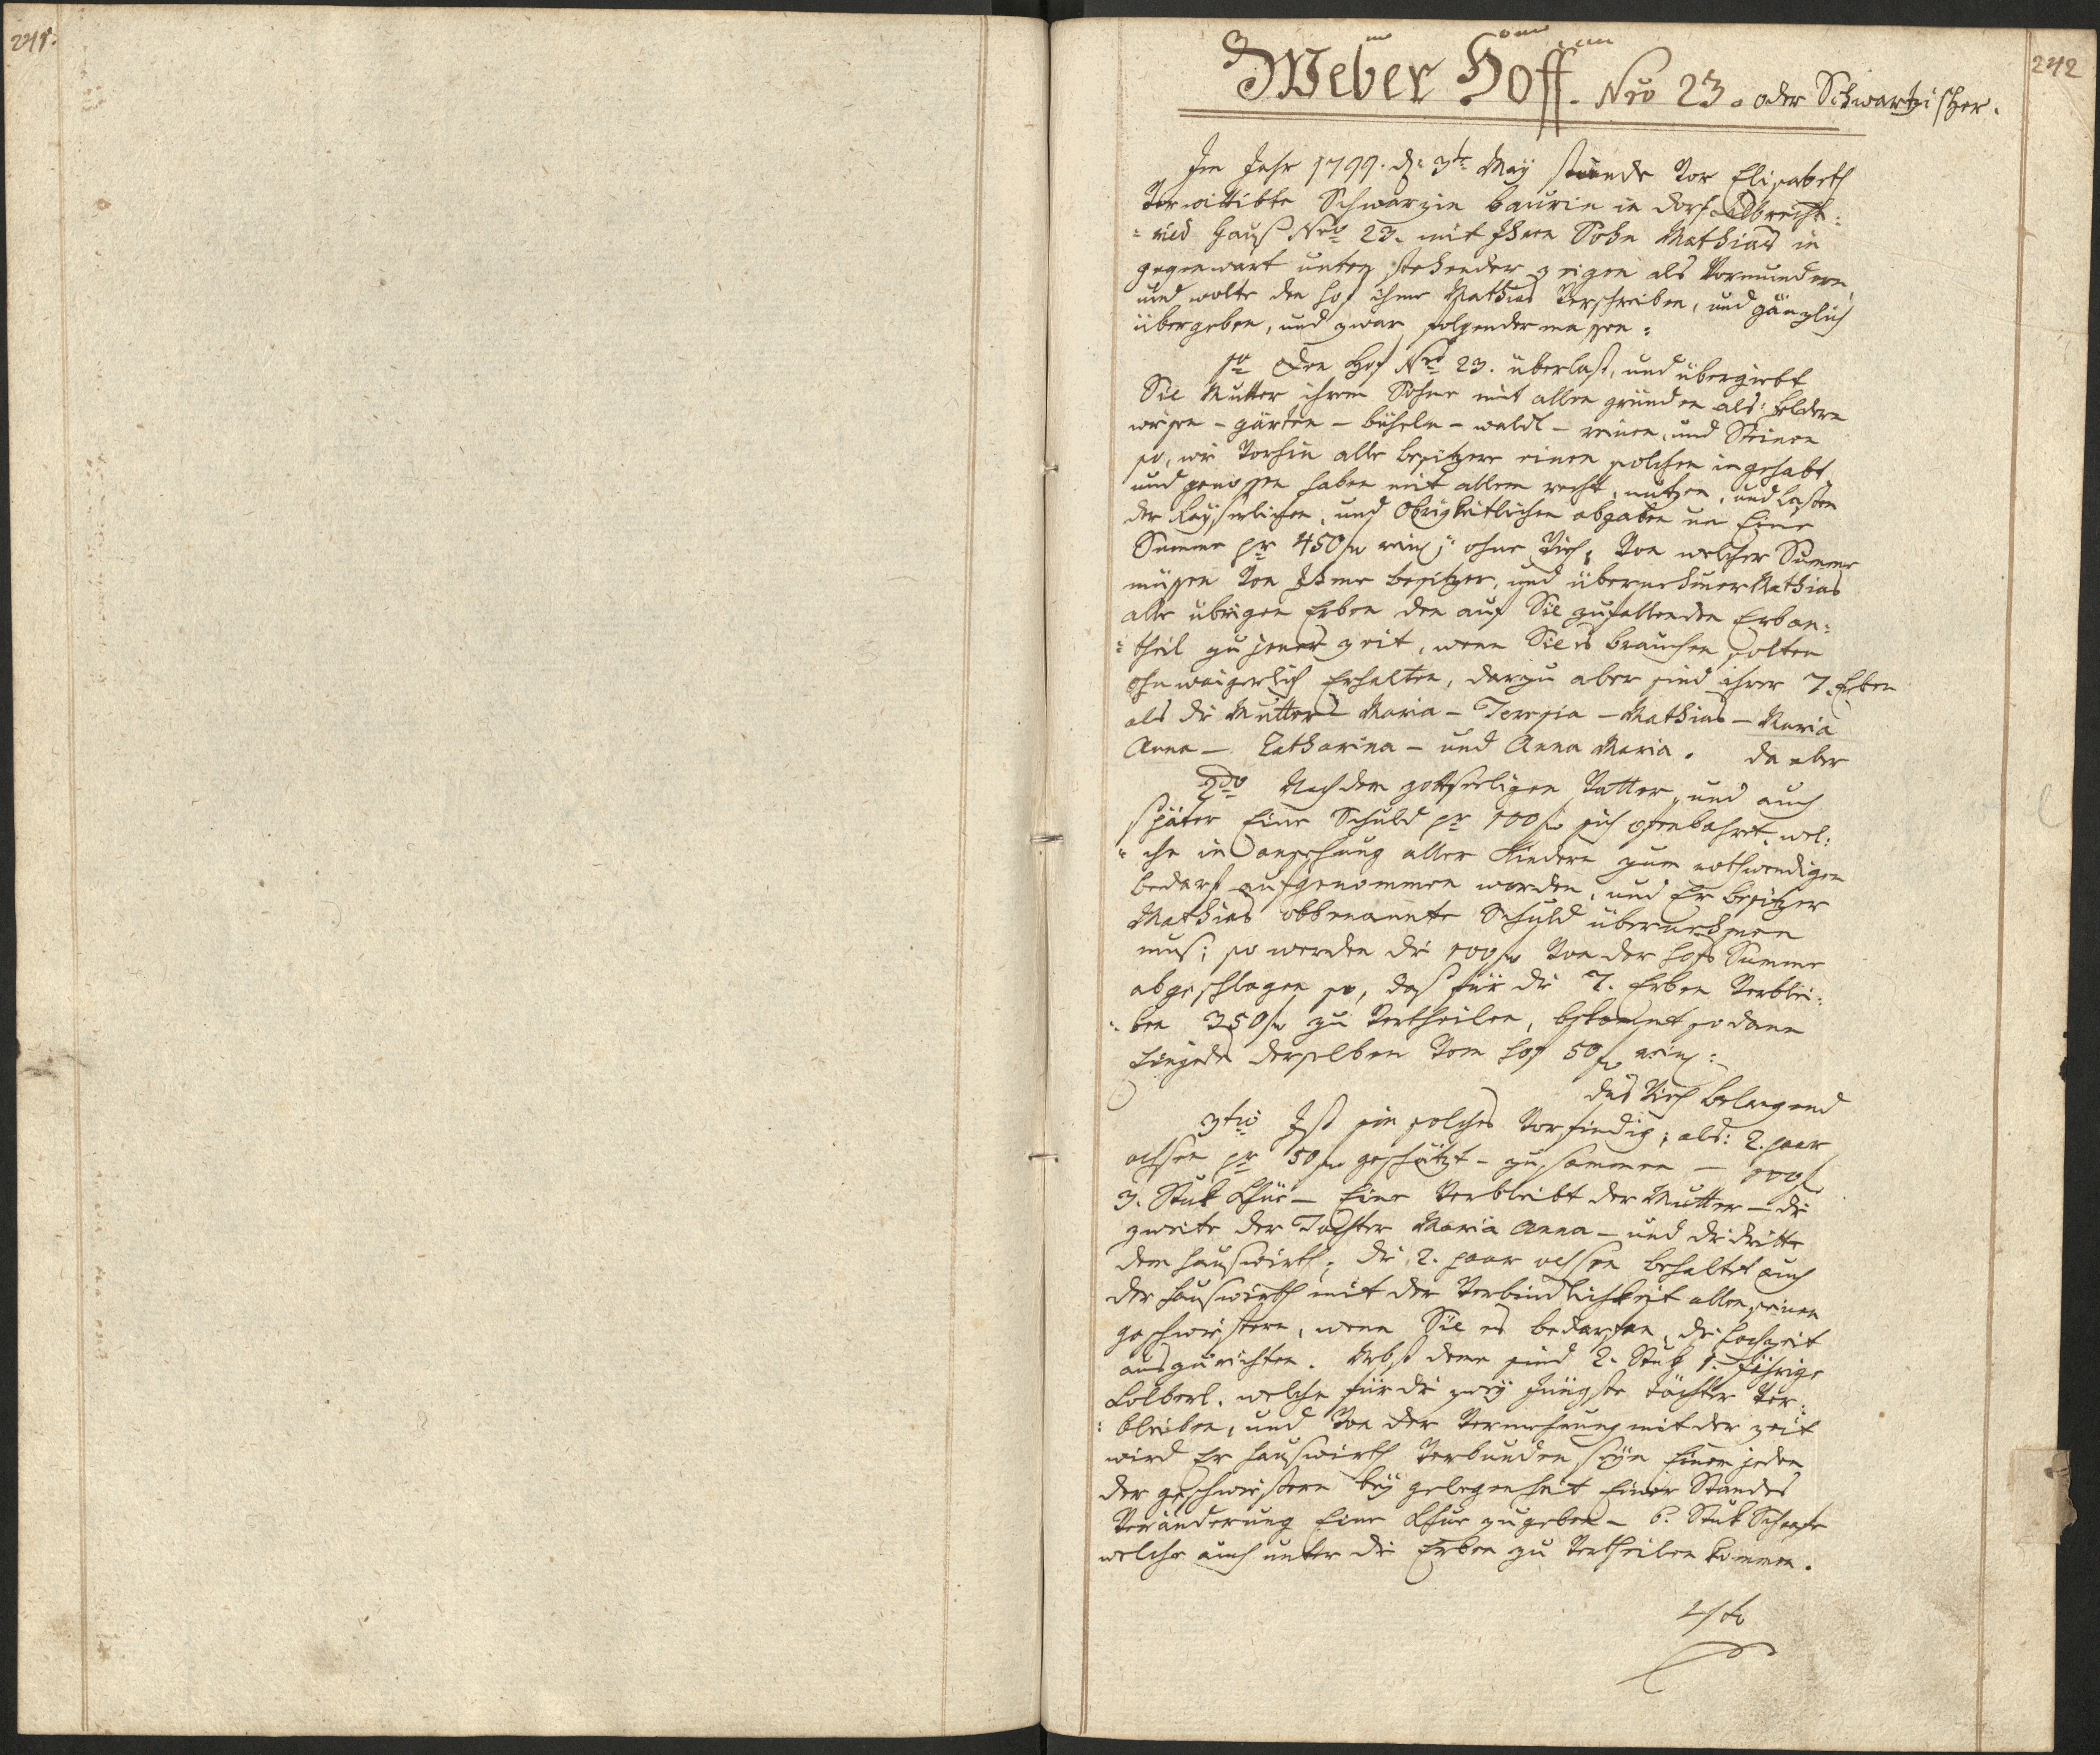 241.
242
Weber Hoff. Nro 23. oder Schwartzischer.
Im Jahr 1799. d: 3te May stunde vor Elisabeth
verwittibte Schwarzin baurin in dorf Albrecht:
=ried Hauß Nro 23. mit Ihren Sohn Mathias in
gegenwart unten stehender zeigen als Vormundern,
und wolte den hof ihme Mathias verschreiben, und gänzlich
übergeben, und zwar folgender massen:
1o Den Hof Nro 23. überlast, und übergiebt
Sie Mutter ihrem Sohne mit allen gründen als: feldern
wiesen - gärten - büheln - waldl - reinen, und Steinen
so, wie vorhin alle besitzere einen solchen ingehabt,
und genossen haben mit allem recht, nutzen, und lasten
der Kayserlichen, und Obrigkeitlichen abgaben um Eine
Summe pr 450 f reinl: ohne Vieh; von welcher Summe
müssen von Ihme besitzer, und übernehmer Mathias
alle übrigen Erben den auf Sie zufallenden Erban:
=theil zu jener zeit, wenn Sie es brauchen solten
ohnweigerlich Erhalten, darzu aber sind ihrer 7. Erben
als die Mutter - Maria - Teresia - Mathias - Maria
Anna - Catharina - und Anna Maria. da aber
2do Nach dem gottseeligen Vatter, und auch
später Eine Schuld pr 100 f sich offenbahret, wel:
=che in ansehung aller Kindern zum nothwendigen
bedarf aufgenommen worden, und Er besitzer
Mathias obbenannte Schuld übernehmen
mus; so werden die 100 f von der hofs Summe
abgeschlagen so, daß für die 7. Erben verblei:
=ben 350 f zu vertheilen, bekommt so dann
Einjeder derselben vom hof 50 f reinl:
das Vieh belangend
3tio Ist ein solches vorfindig; als: 2. paar
ochsen pr 50 f geschätzt - zusammen - 100 f
3. Stuk Khüe - Eine verbleibt der Mutter - die
zweite der Tochter Maria Anna - und die dritte
dem hauswirth; die 2. paar ochsen behaltet auch
der hauswirth mit der Verbindlichkeit allen seinen
geschwistern, wenn Sie es bedarfen, die hochzeit
auszurichten. Nebst deme sind 2. Stuk 1. jährige
Kolberl, welche für die zwey jüngste töchter ver:
=bleiben, und von der Vermehrung mit der zeit
wird Er hauswirth verbunden seyn Einem jeden
der geschwistern bey gelegenheit Einer Standes
Veränderung Eine Khue zu geben - 6. Stuk Schaafe
welche auch unter die Erben zu vertheilen kommen.
4to